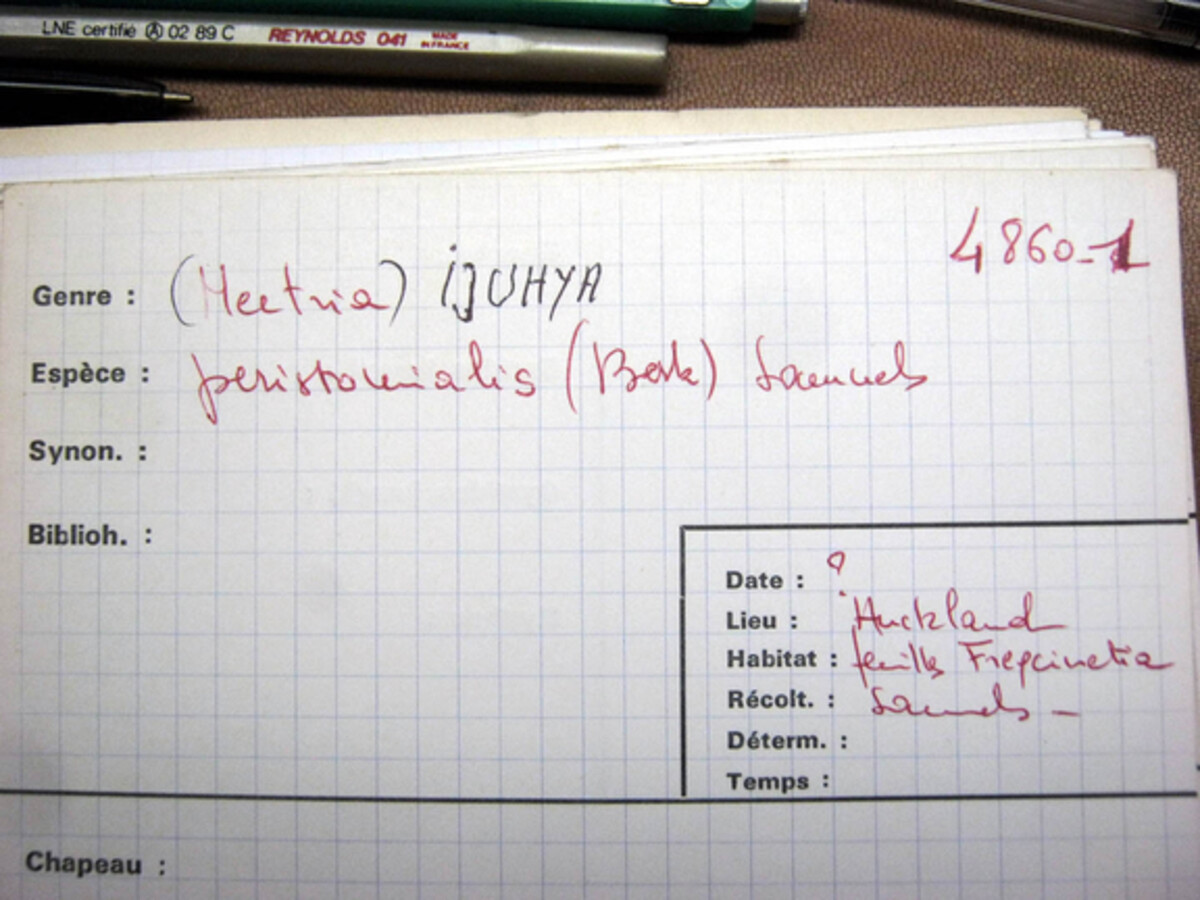 LNE certifié Ⓐ 02 89 C REYNOLDS 041 MADE IN FRANCE
4860-1
Genre : (Nectria) IJUHYA
Espèce : peristomialis (Berk) Samuels
Synon. :
Biblioh. :
Date : ?
Lieu : Auckland
Habitat : feuilles Freycinetia
Récolt. : Samuels -
Déterm. :
Temps :
Chapeau :